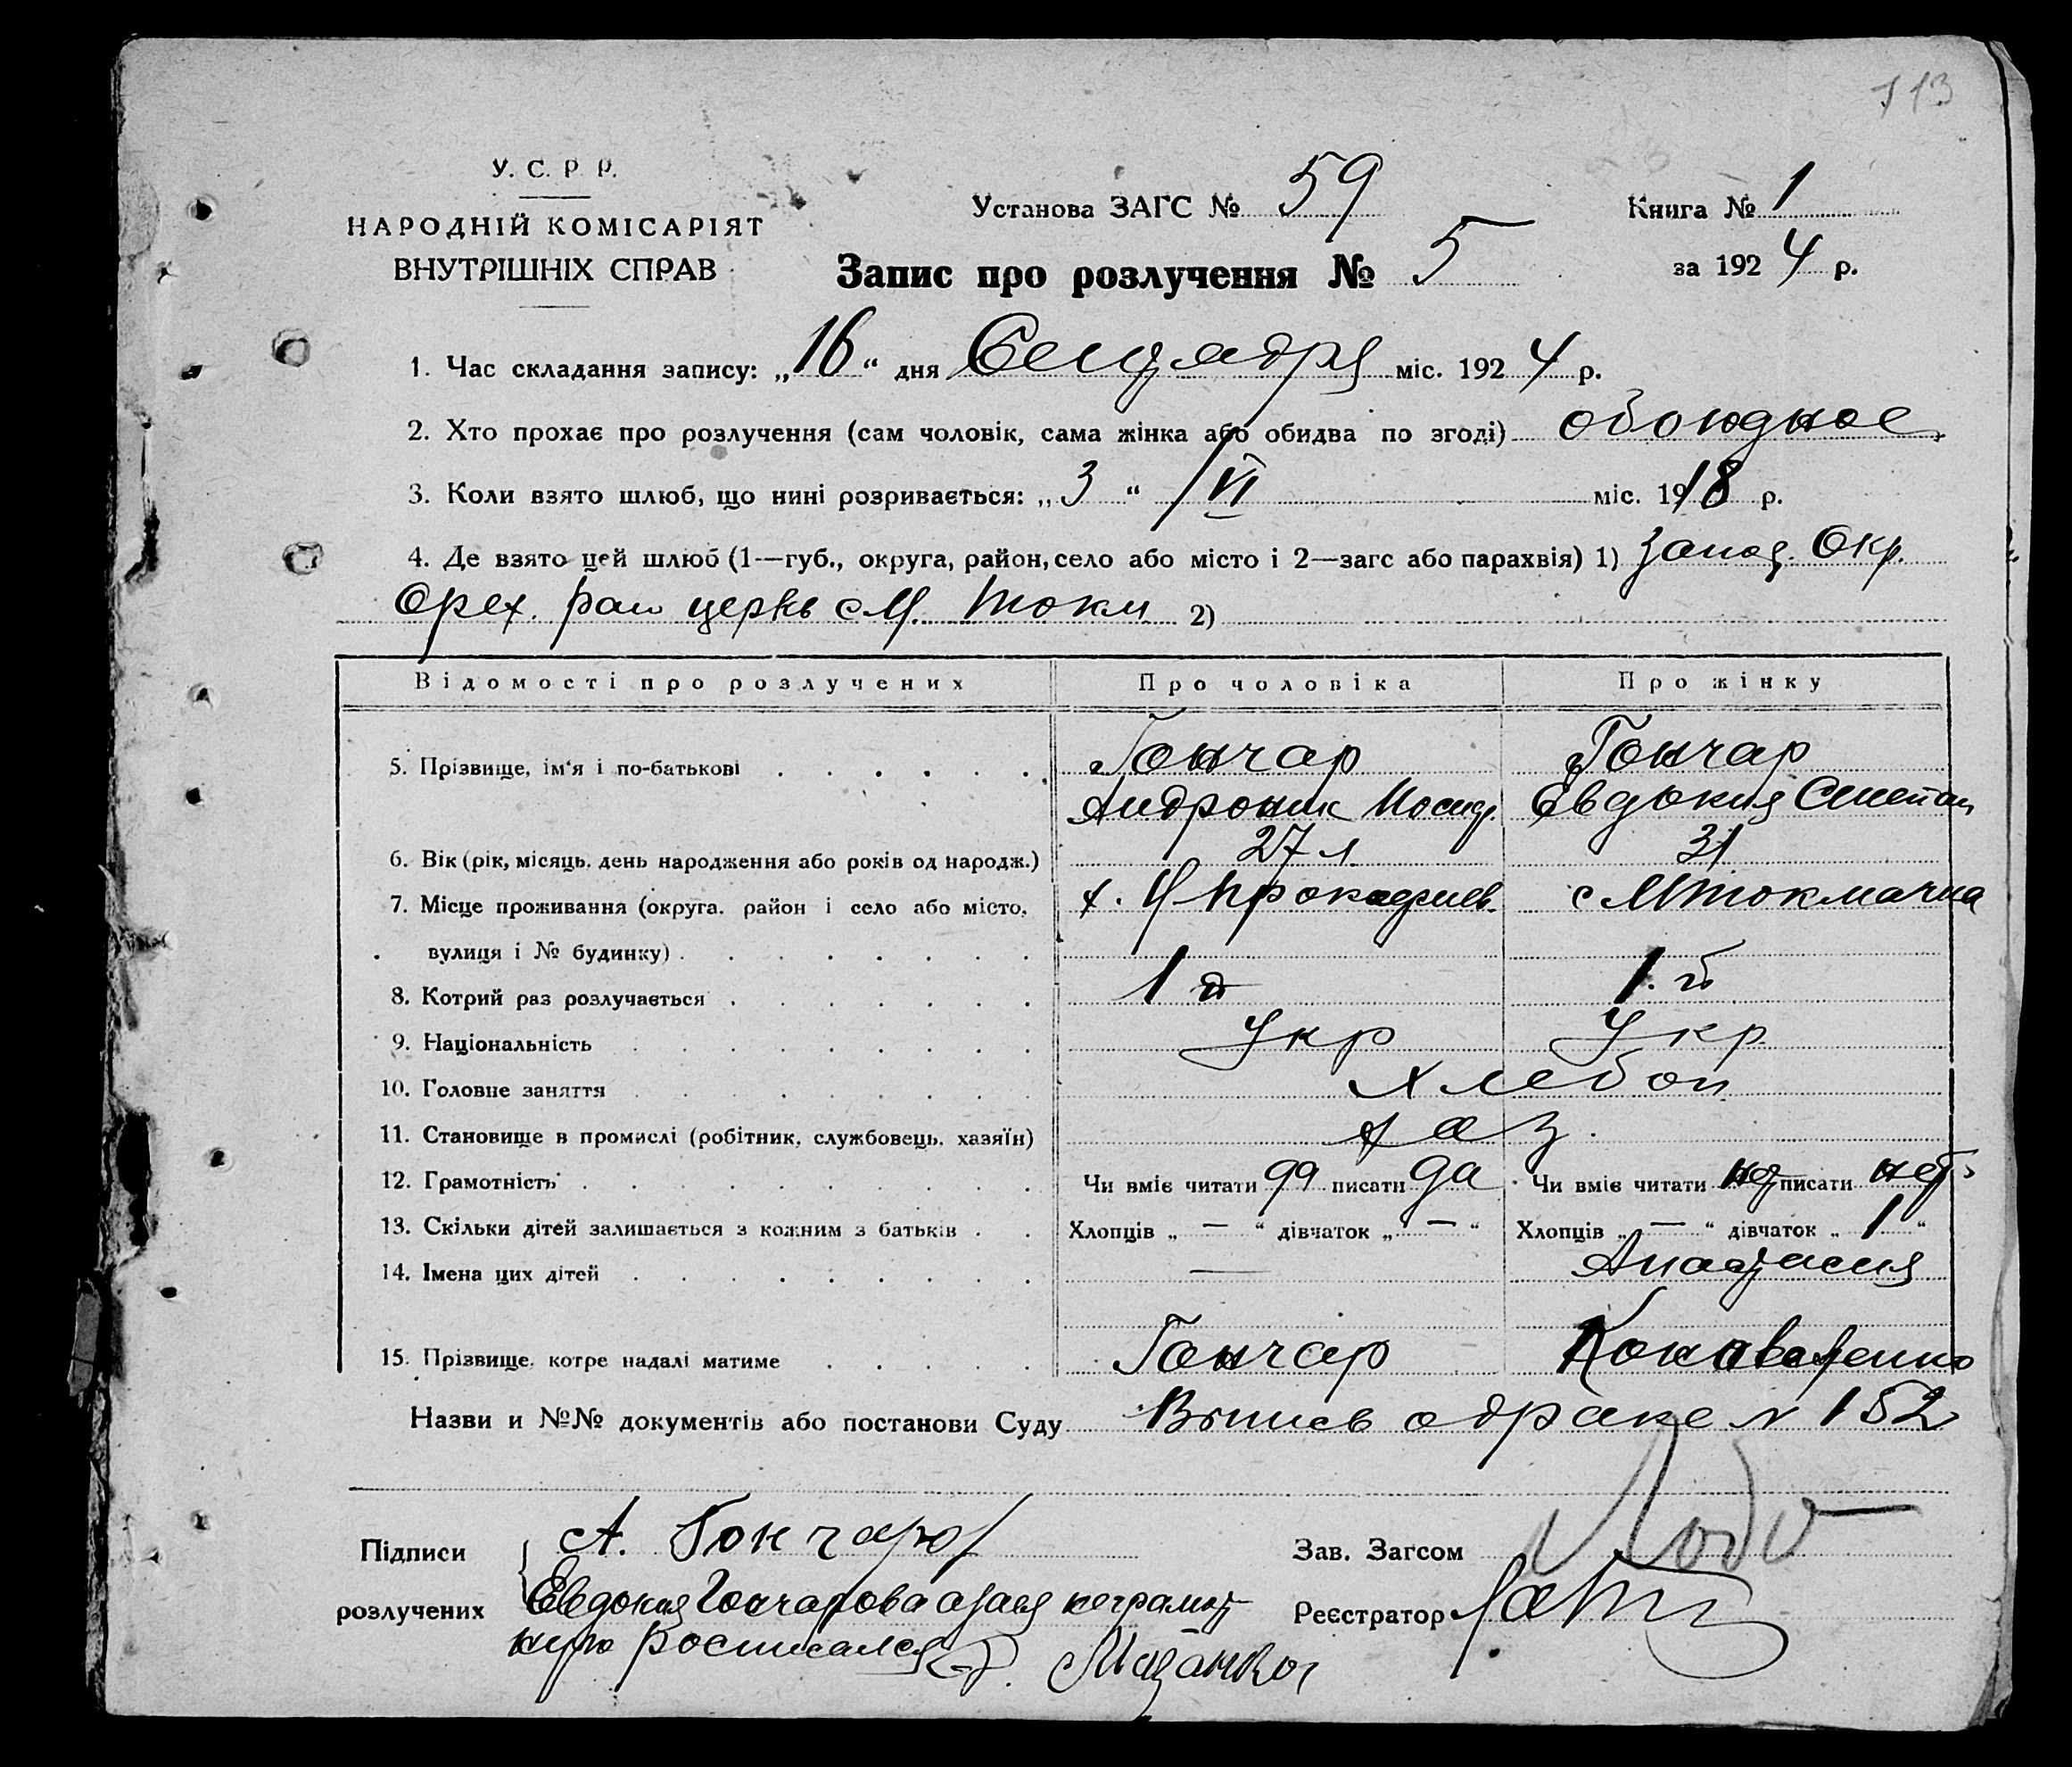 113
У. С. Р. Р.
НАРОДНІЙ КОМІСАРІЯТ
ВНУТРІШНІХ СПРАВ
Установа ЗАГС № 59
Книга № 1
Запис про розлучення № 5
за 1924 р.
1. Час складання запису: „16“ дня Сентября міс. 1924 р.
2. Хто прохає про розлучення (сам чоловік, сама жінка або обидва по згоді) обоюдное
3. Коли взято шлюб, що нині розривається: „3“ /VI міс. 1918 р.
4. Де взято цей шлюб (1—губ., округа, район, село або місто і 2—загс або парахвія) 1) Запор. Окр.
Орех. рай церкв с М. Токм 2)
Відомості про розлучених Про чоловіка Про жінку
5. Прізвище, ім'я і по-батькові Гончар Гончар
Андроник Евдокия Степан
6. Вік (рік, місяць, день народження або років од народж.) 27 л 31
7. Місце проживання (округа, район і село або місто, с М Токмачка
вулиця і № будинку)
8. Котрий раз розлучається 1й 1.й
9. Національність Укр Укр
10. Головне заняття Хлебоп
11. Становище в промислі (робітник, службовець, хазяїн) хаз.
12. Грамотність Чи вміє читати да писати да Чи вміє читати нет писати нет
13. Скільки дітей залишається з кожним з батьків Хлопців „—“ дівчаток „—“ Хлопців „—“ дівчаток „1“
14. Імена цих дітей — Анастасия
15. Прізвище, котре надалі матиме Гончар Коноваленко
Назви и №№ документів або постанови Суду Выпись о браке № 152
Підписи А. Гончаров
Зав. Загсом
розлучених Евдокия Гончарова а за ея неграмот
Реєстратор
ную росписался